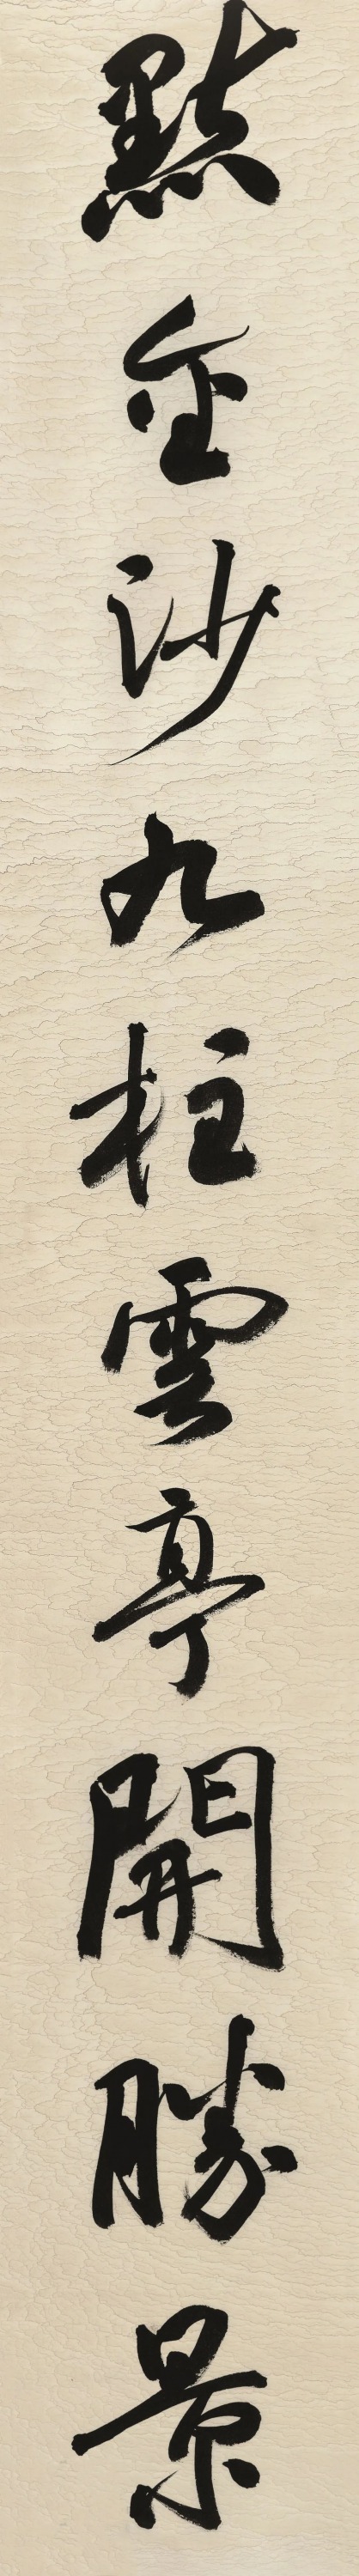 點金沙九柱雲亭開勝景